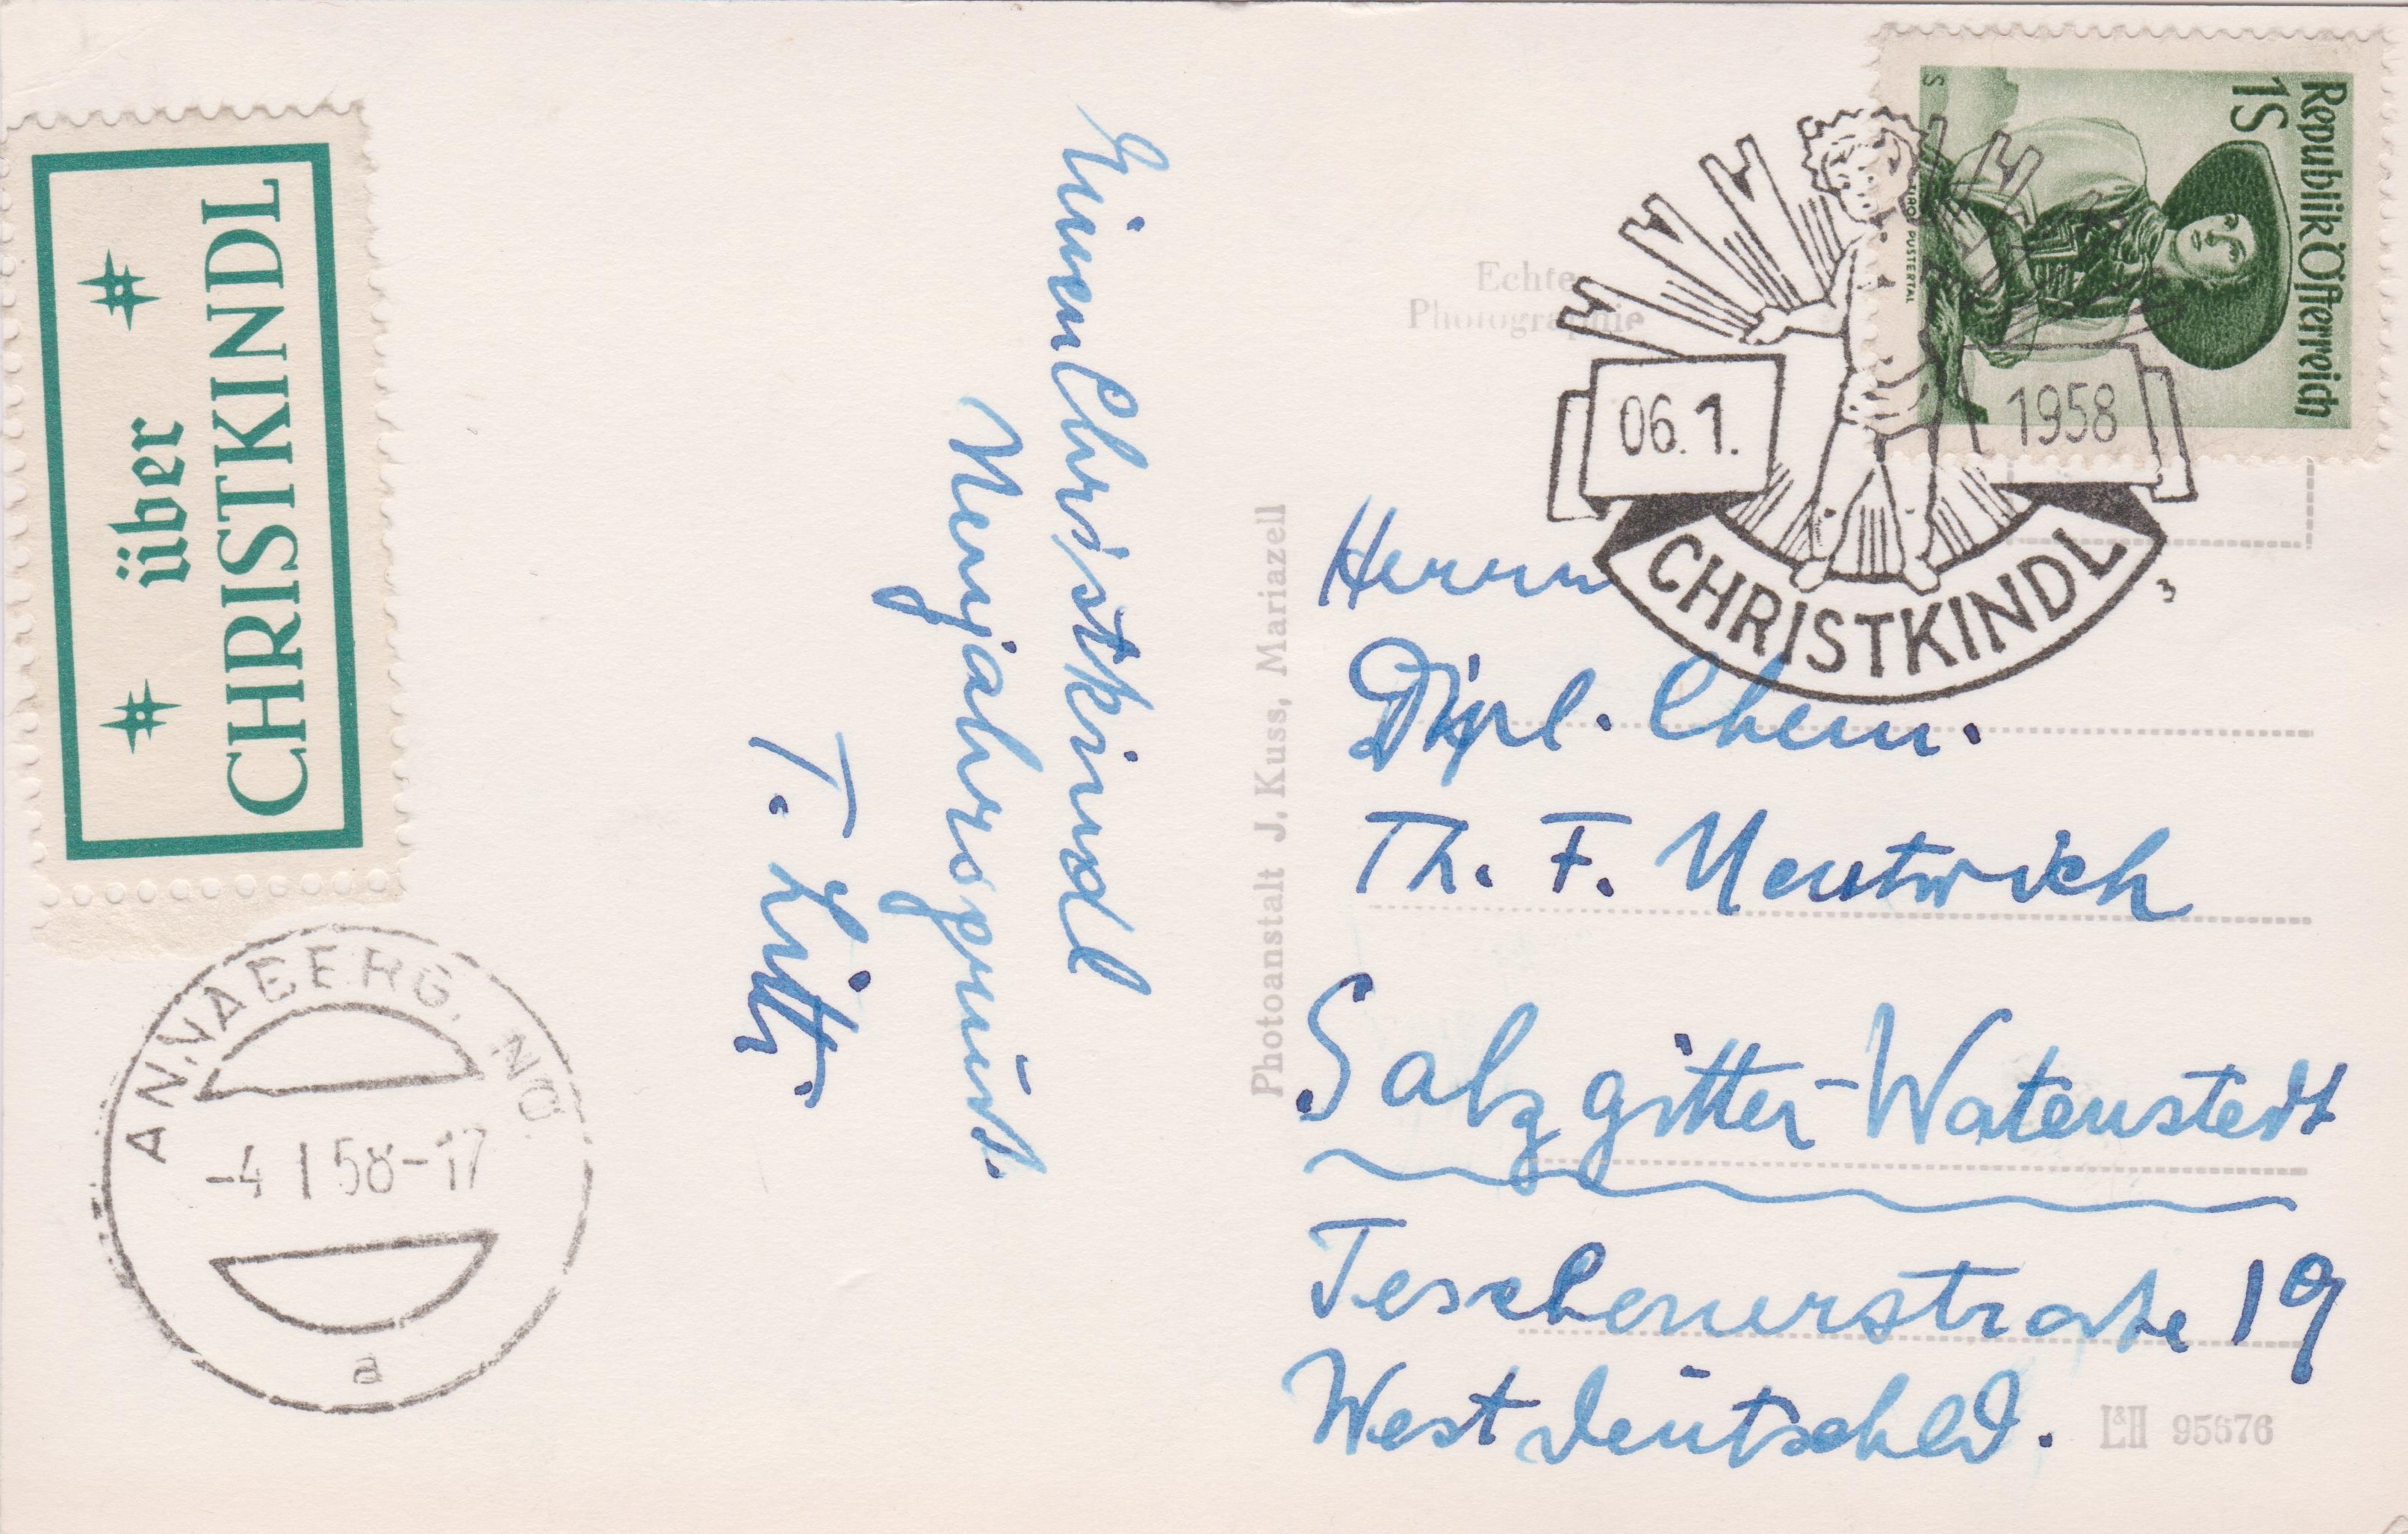 über
CHRISTKINDL
ANNABERG, NÖ.
-4. I 58-17
a
Einen Christkindl
Neujahrsgruß.
T.
Photoanstalt J. Kuss, Mariazell
Echte
Photographie
Republik Österreich
1S
TIROL PUSTERTAL
06. 1. 1958
CHRISTKINDL
Herrn
Dipl. Chem.
Th. F. Neutwich
Salzgitter-Watenstedt
Teschenerstraße 19
Westdeutschld.
95676